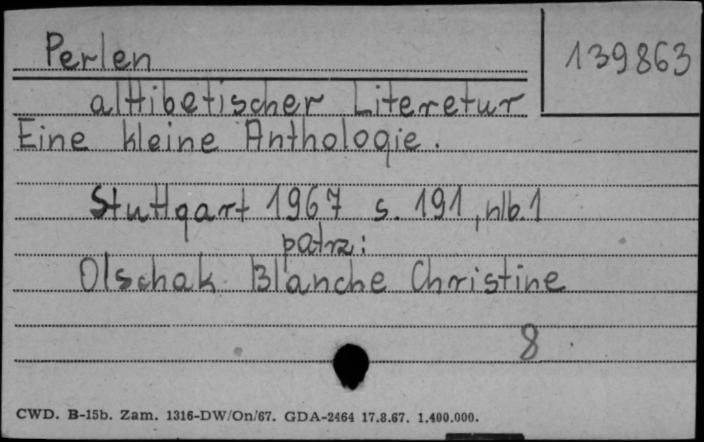 Perlen
139863
alttibetischer Literetur
Eine kleine Anthologie.
Stuttgart 1967 s. 191, nlb. 1
patrz:
Olschak Blanche Christine
8
CWD. B-15b. Zam. 1316-DW/On/67. GDA-2464 17.8.67. 1.400.000.